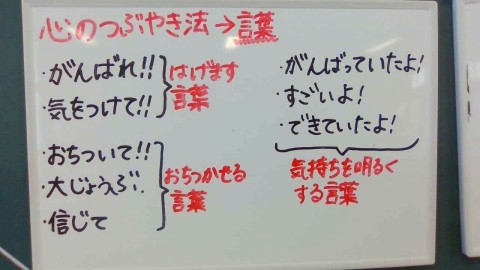 心のつぶやき法→言葉
・がんばれ!!
・気をつけて!!
はげます
言葉
・おちついて!!
・大じょうぶ.
・信じて
おちつかせる
言葉
・がんばっていたよ!
・すごいよ!
・できていたよ!
気持ちを明るく
する言葉